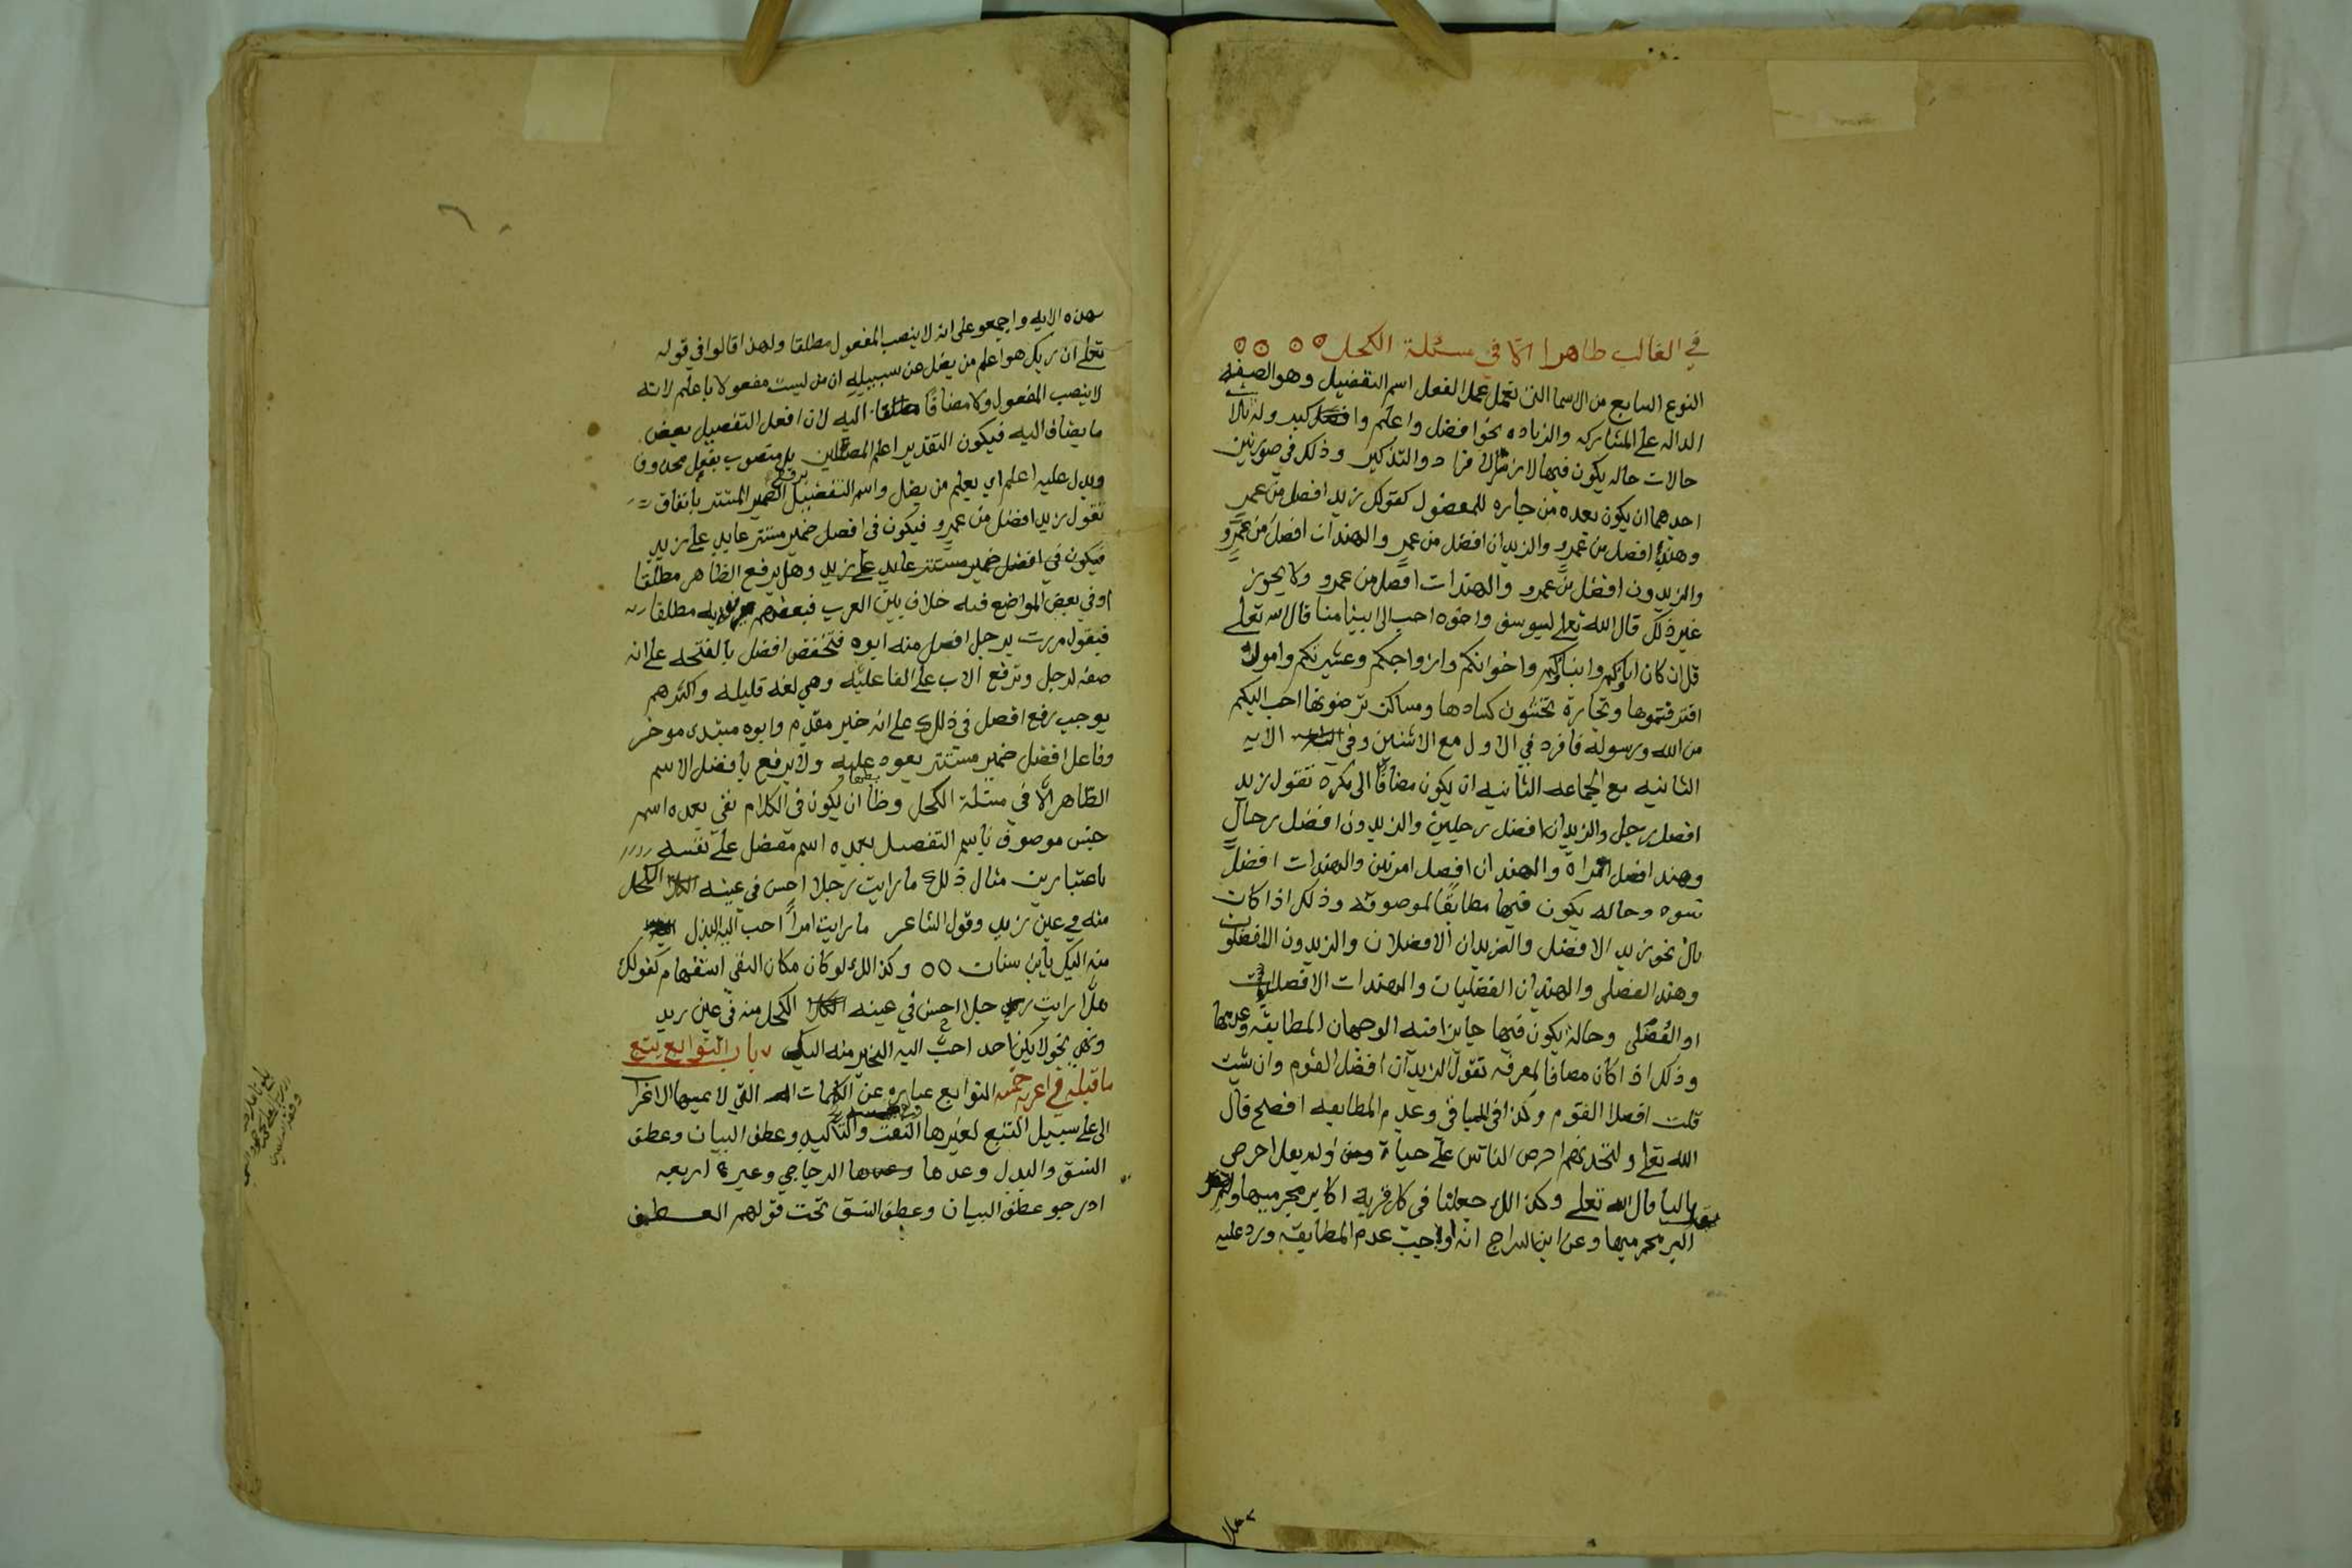 في الغالب ظاهرا الا في مسئلة الكحل
النوع السابع من الاسما التى تعمل عمل الفعل اسم التفضيل وهو الصفه
الداله على المشاركه والزياده نحو افضل واعلم واكبر وله ثلاث
حالات حاله يكون فيها لازما للافراد والتذكير وذلك في صورتين
احدهما ان يكون بعده من جاره للمفضول كقولك زيد افضل من عمرو
وهند افضل من عمرو والزيدان افضل من عمرو والهندات افضل من عمرو
والزيدون افضل من عمرو والهندات افضل من عمرو ولا يجوز
غير ذلك قال الله تعلى ليوسف واخوه احب الى ابينا منا قال الله تعلى
قل ان كان اباوكم وابناوكم واخوانكم وازواجكم وعشيرتكم واموال
اقترفتموها وتجارة تخشون كسادها ومساكن ترضونها احب اليكم
من الله ورسوله فافرد في الاول مع الاثنين وفي الايه
الثانيه مع الجماعه الثانيه ان يكون مضافا الى نكره تقول زيد
افضل رجل والزيدان افضل رجلين والزيدون افضل رجال
وهند افضل امراة والهندان افضل امرتين والهندات افضل
نسوه وحاله يكون فيها مطابقا لموصوفه وذلك اذا كان
بال نحو زيد الافضل والزيدان الافضلان والزيدون الافضلون
وهند الفضلى والهندان الفضليات والهندات الافضليات
او الفضلى وحالة يكون فيها جايزا فيه الوجهان المطابقه وعدمها
وذلك اذا كان مضافا لمعرفه تقول الزيدان افضل القوم وان شيت
قلت افضلا القوم وكذا في الباقي وعدم المطابقه افصح قال
الله تعلى ولتجدنهم احرص الناس على حياة ولم يقل احرصي
باليا وقال الله تعلى وكذالك جعلنا في كل قرية اكابر مجرميها ولم يقل
اكبر مجرميها وعن ابن السراج انه اوجب عدم المطابقه ورد عليه
هذه الايه واجمعو على انه لا ينصب المفعول مطلقا ولهذا قالوا في قوله
تعلى ان ربك هو اعلم من يضل عن سبيله ان من ليست مفعولا باعلم لانه
لا ينصب المفعول ولا مضافا اليه لان افعل التفضيل بعض
ما يضاف اليه فيكون التقدير اعلم المضلين بل منصوب بفعل محذوف
ويدل عليه اعلم اي يعلم من يضل واسم التفضيل يرفع الضمير المستتر باتفاق
تقول زيد افضل من عمرو فيكون في افضل ضمير مستتر عايد على زيد
فيكون في افضل ضمير مستتر عايد على زيد وهل يرفع الظاهر مطلقا
او في بعض المواضع فيه خلاف بين العرب فبعضهم يرفع به مطلقا
فيقول مررت برجل افضل منه ابوه فتخفض افضل بالفتحه على انه
صفه لرجل وترفع الاب على الفاعليه وهي لغه قليله واكثرهم
يوجب رفع افضل في ذلك على انه خبر مقدم وابوه مبتدى موخر
وفاعل افضل ضمير مستتر يعود عليه ولا يرفع بافضل الاسم
الظاهر الا في مسئلة الكحل وضابطها ان يكون في الكلام نفى بعده اسم
جنس موصوف باسم التفضيل بعده اسم مفضل على نفسه
باعتبارين مثال ذلك ما رايت رجلا احسن في عينه الكحل
منه في عين زيد وقول الشاعر ما رايت امراً احب اليه البذل
منه اليك يا ابن سنان وكذالك لو كان مكان النفى استفهام كقولك
هل رايت رجلا احسن في عينه الكحل منه في عين زيد
ونهي نحو لا يكن احد احب اليه الخير منه اليك باب التوابع يتبع
ما قبله في اعرابه خمسه التوابع عباره عن الكلمات التي لا يمسها الاعراب
الا على سبيل التبع لغيرها وهي خمسه النعت والتاكيد وعطف البيان وعطف
النسق والبدل وعدها الزجاجي وغيره اربعه
ادرجو عطف البيان وعطف النسق تحت قولهم العطف